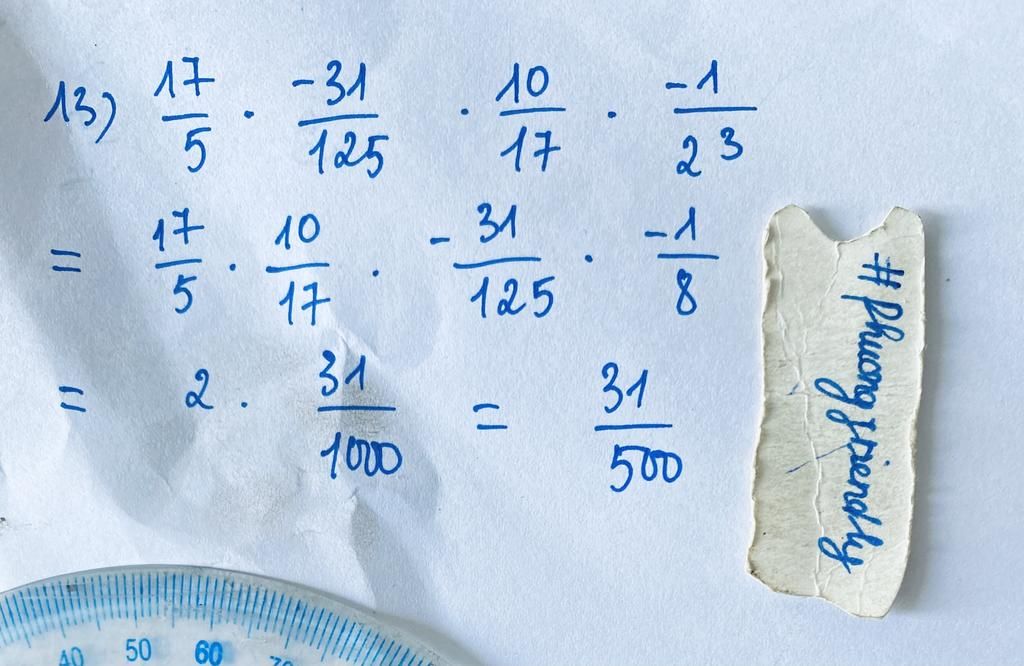 13) 17/5 · -31/125 · 10/17 · -1/2³
= 17/5 · 10/17 · -31/125 · -1/8
= 2 · 31/1000 = 31/500
#phuongfriendly
40 50 60 70